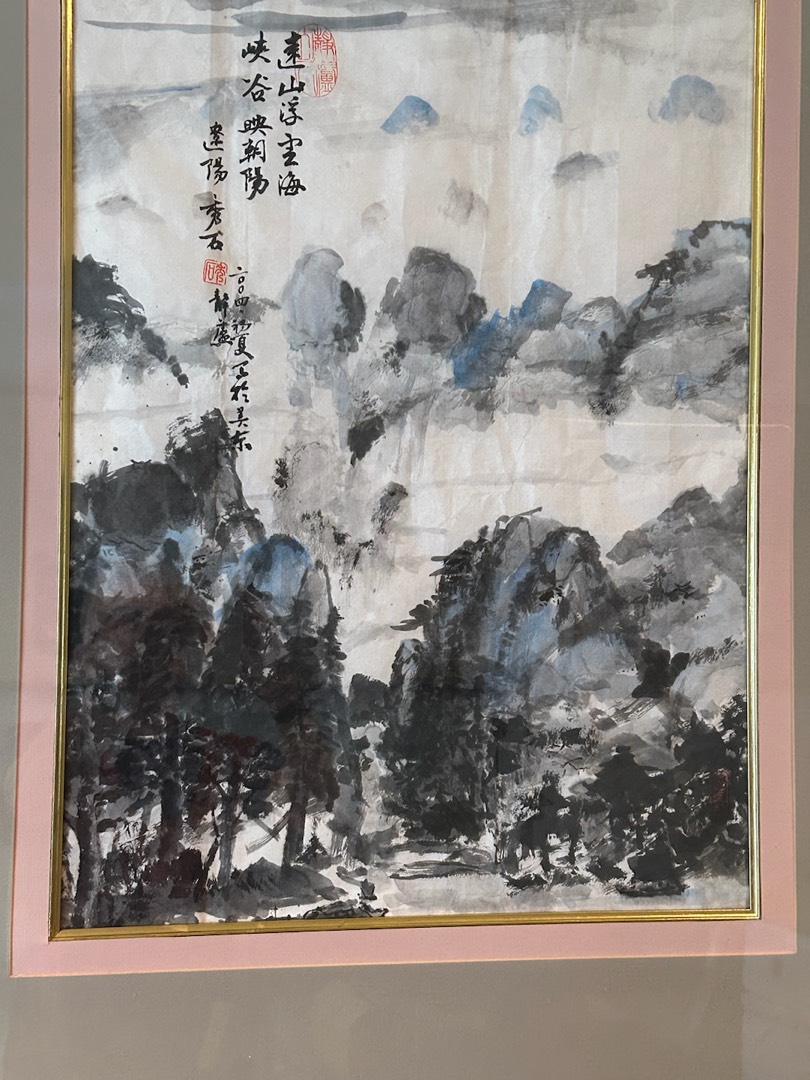 遠山浮雲海
峽谷映朝陽
遼陽 秀石
二〇〇四·初夏写於吴东
静廬